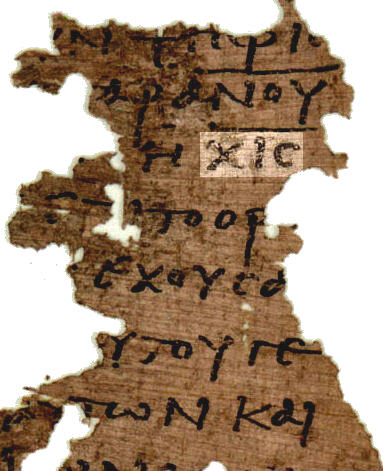 Ν Τ ΗΡΙ
ΑΡ ΑΝΟΥ
Η ΧΙϹ
ΠΙ ΤΟ ΟΡ
ΕΧΟΥϹΑ
ΥΤΟΥ ΓΕ
ΤΩΝ ΚΑΙ